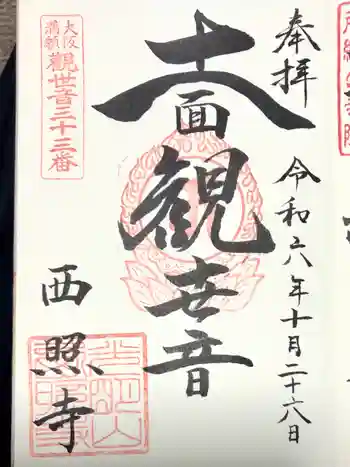 奉拝
令和六年十月二十六日
十一面観世音
大阪
満願
観世音三十三番
西照寺